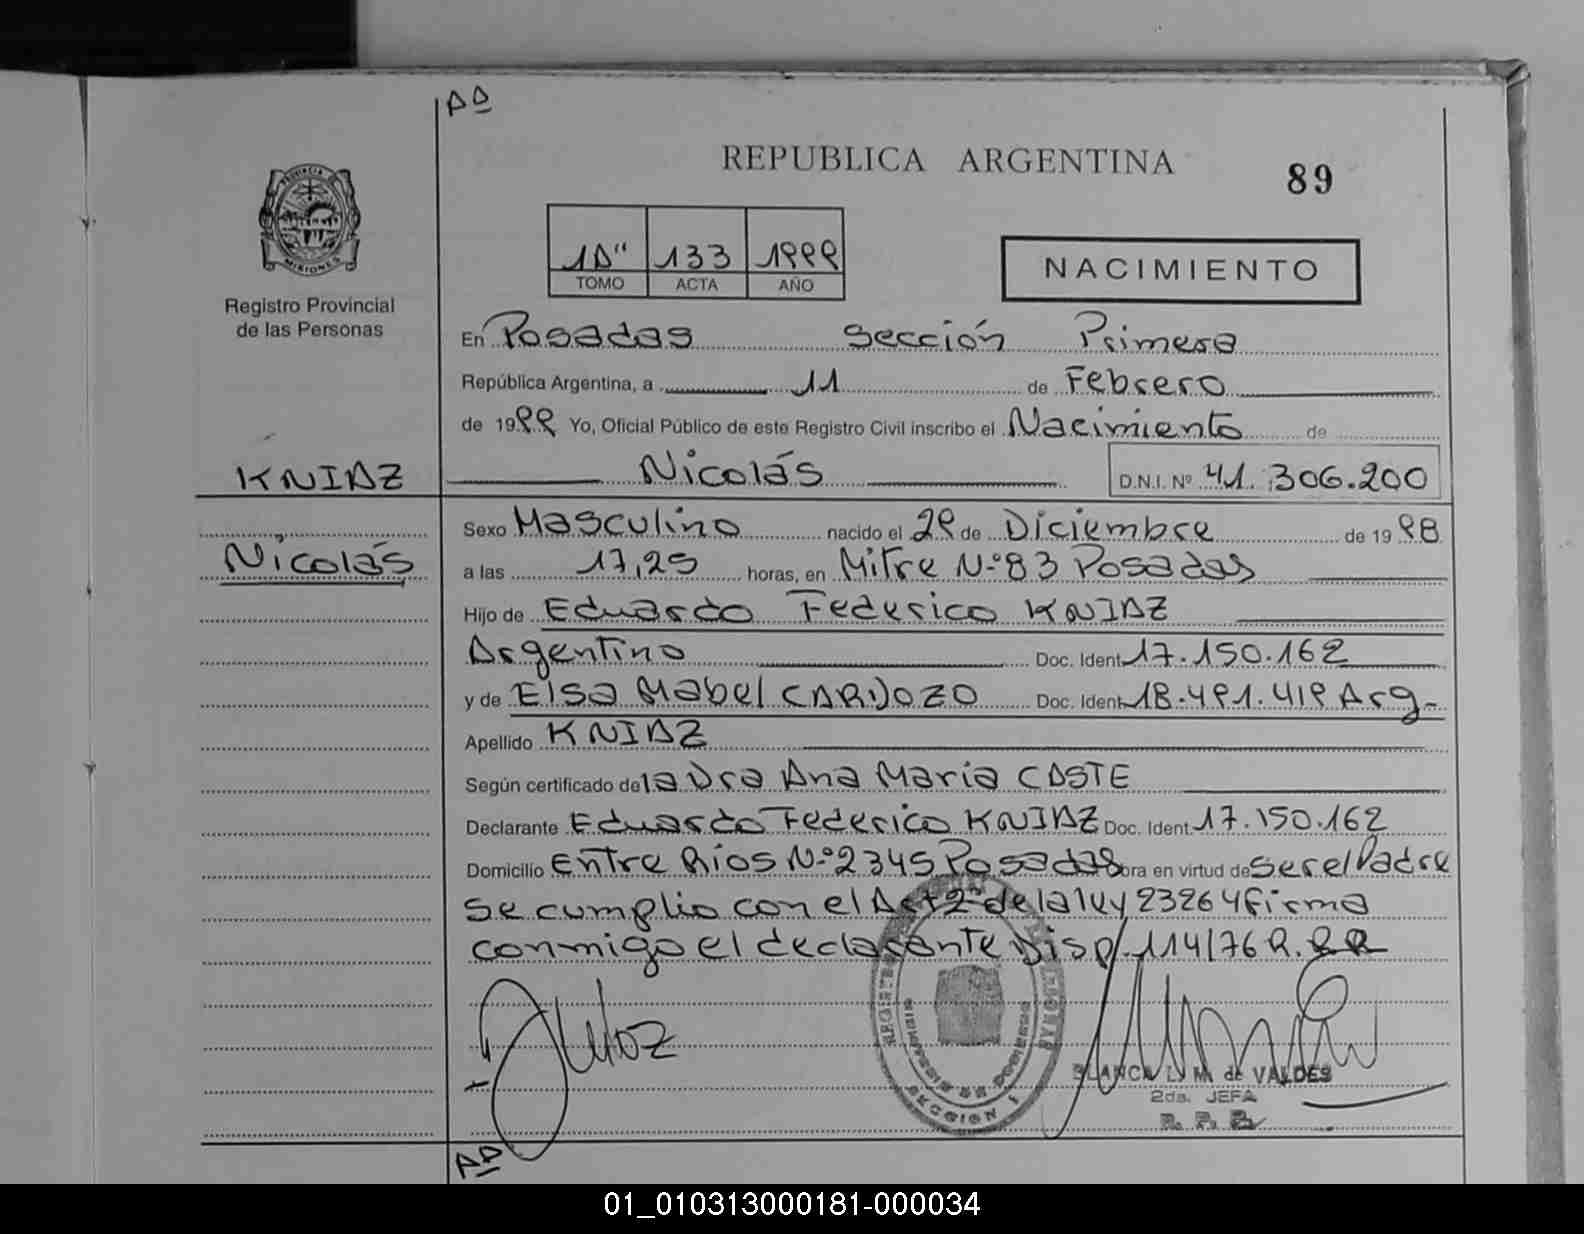 AA
REPUBLICA ARGENTINA
89
PROVINCIA DE
MISIONES
Registro Provincial
de las Personas
1A" 133 1999
TOMO ACTA AÑO
NACIMIENTO
En Posadas Sección Primera
República Argentina, a 11 de Febrero
de 1999 Yo, Oficial Público de este Registro Civil inscribo el Nacimiento de
KNIAZ Nicolás D.N.I. Nº 41.306.200
Nicolás
Sexo Masculino nacido el 29 de Diciembre de 1998
a las 17,25 horas, en Mitre Nº 83 Posadas
Hijo de Eduardo Federico KNIAZ
Argentino Doc. Ident. 17.150.162
y de Elsa Mabel CARDOZO Doc. Ident. 18.491.419 Arg-
Apellido KNIAZ
Según certificado de la Dra Ana Maria CASTE
Declarante Eduardo Federico KNIAZ Doc. Ident. 17.150.162
Domicilio Entre Rios Nº 2345 Posadas obra en virtud de ser el Padre
se cumplio con el Art 2º de la ley 23264 firma
conmigo el declarante Disp. 114/76 R.
SECCION 1
BLANCA L. M. de VALDES
2da. JEFA
R. P. P.
AA
01_010313000181-000034